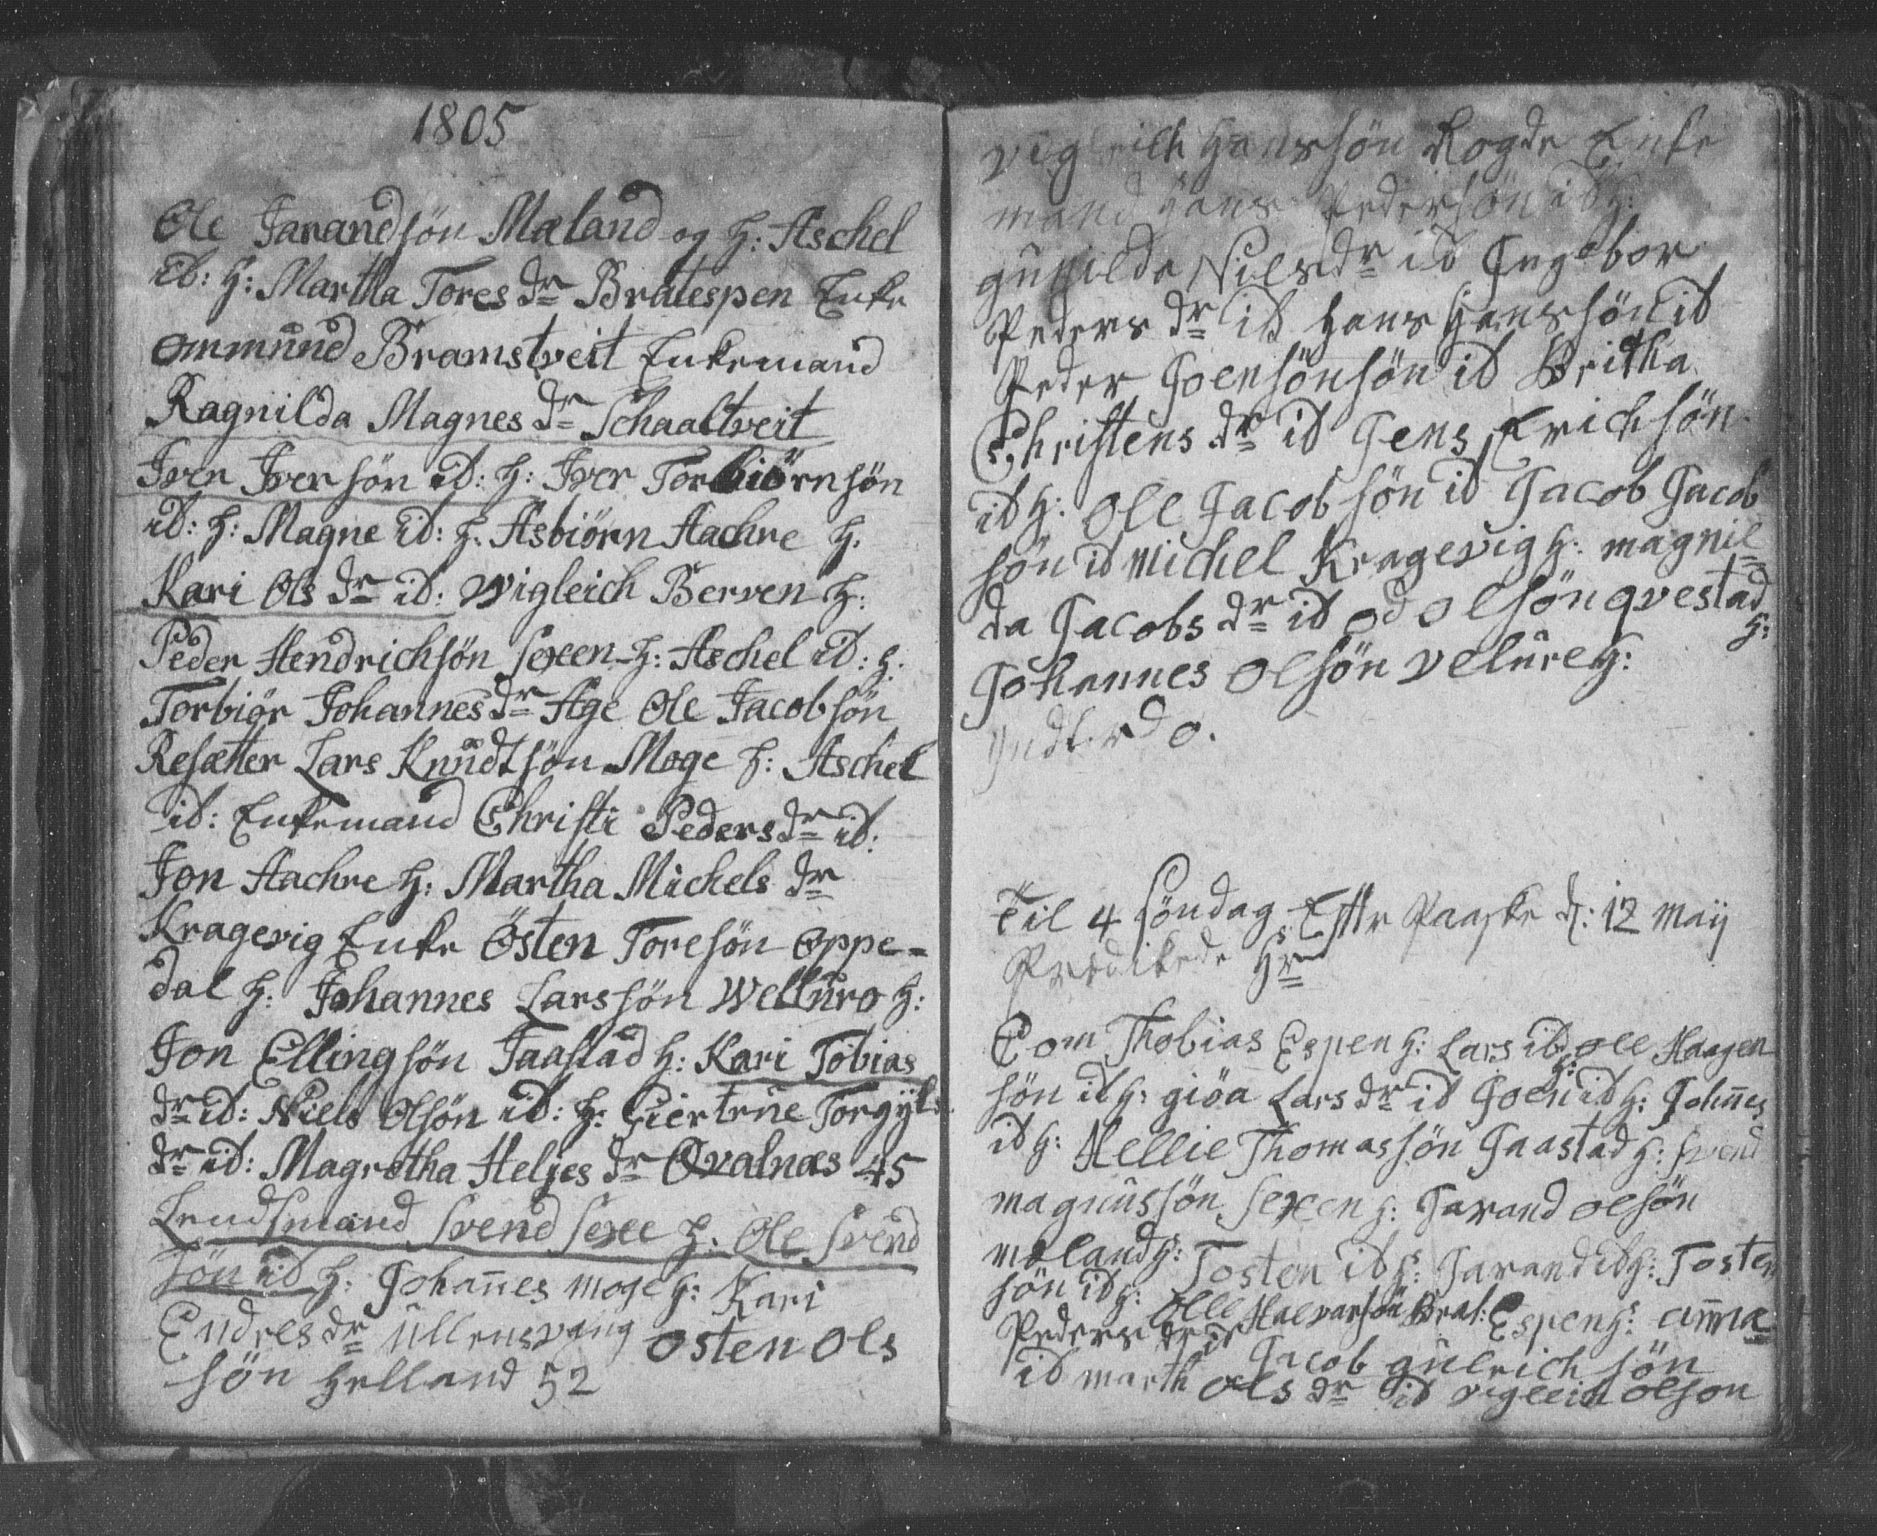 1805
Ole Jarandsøn Mæland og H: Aschel
id: H: Martha Tores dr Bratespen Enke
ommund Bramstveit Enkemand
Ragnilda Magnes dr Schaaltveit
Iver Iversøn id: H: Iver Torbiørnsøn
id: H: Magne id: H. Asbiørn Aachre H.
Kari Ols dr id: Wigleich Berven H:
Peder Hendrichsøn Sexen H: Aschel id: H.
Torbiør Johannes dr Age Ole Jacobsøn
Resætter Lars Knudtsøn Moge H: Aschel
id: Enkemand Christi Peders dr id:
Jon Aachre H: Martha Michels dr
Kragevig Enke Østen Toresøn Oppe-
dal H: Johannes Larssøn Welluro H:
Jon Ellingsøn Jaastad H: Kari Tobias
dr id: Niels Olsøn id: H: Giertrue Torgyls
dr id: Magretha Heljes dr Qvalnæs 45
Lendsmand Svend Sexe H: Ole Svend
søn id H: Johan̄es moge H: Kari
Endres dr ullensvang osten ols
søn Helland 52
vigleich Hanssøn Rogde Enke
mand Hans Pedersøn id H:
gunilda Nils dr id Ingebor
Peders dr id Hans Hanssøn id
Peder Joensønsøn id Britha
Christens dr id Jens Erichsøn
id H: Ole Jacobsøn id Jacob Jacob
søn id Michel Kragevig H: magnil-
da Jacobs dr id od olsøn qvestad
H:
Johannes olsøn velure H:
Til 4 søndag Efttr Paaske d: 12 Maij
Predikede Hr
Com Thobias Espen H: Lars id H: ole Haagen
søn id H: giøa Lars dr id Joen id H: Joh̄nes
id H: Hellie Thomassøn Jaastad H: svend
magnussøn Sexen H: Jarand olsøn
mæland H: Tosten id H: Jarand id H: Tosten
søn id H: olle Halvarsøn Brat: Espen H: an̄na
Peders dr id Jacob gulleich søn
id marth ols dr id vigleich olsøn